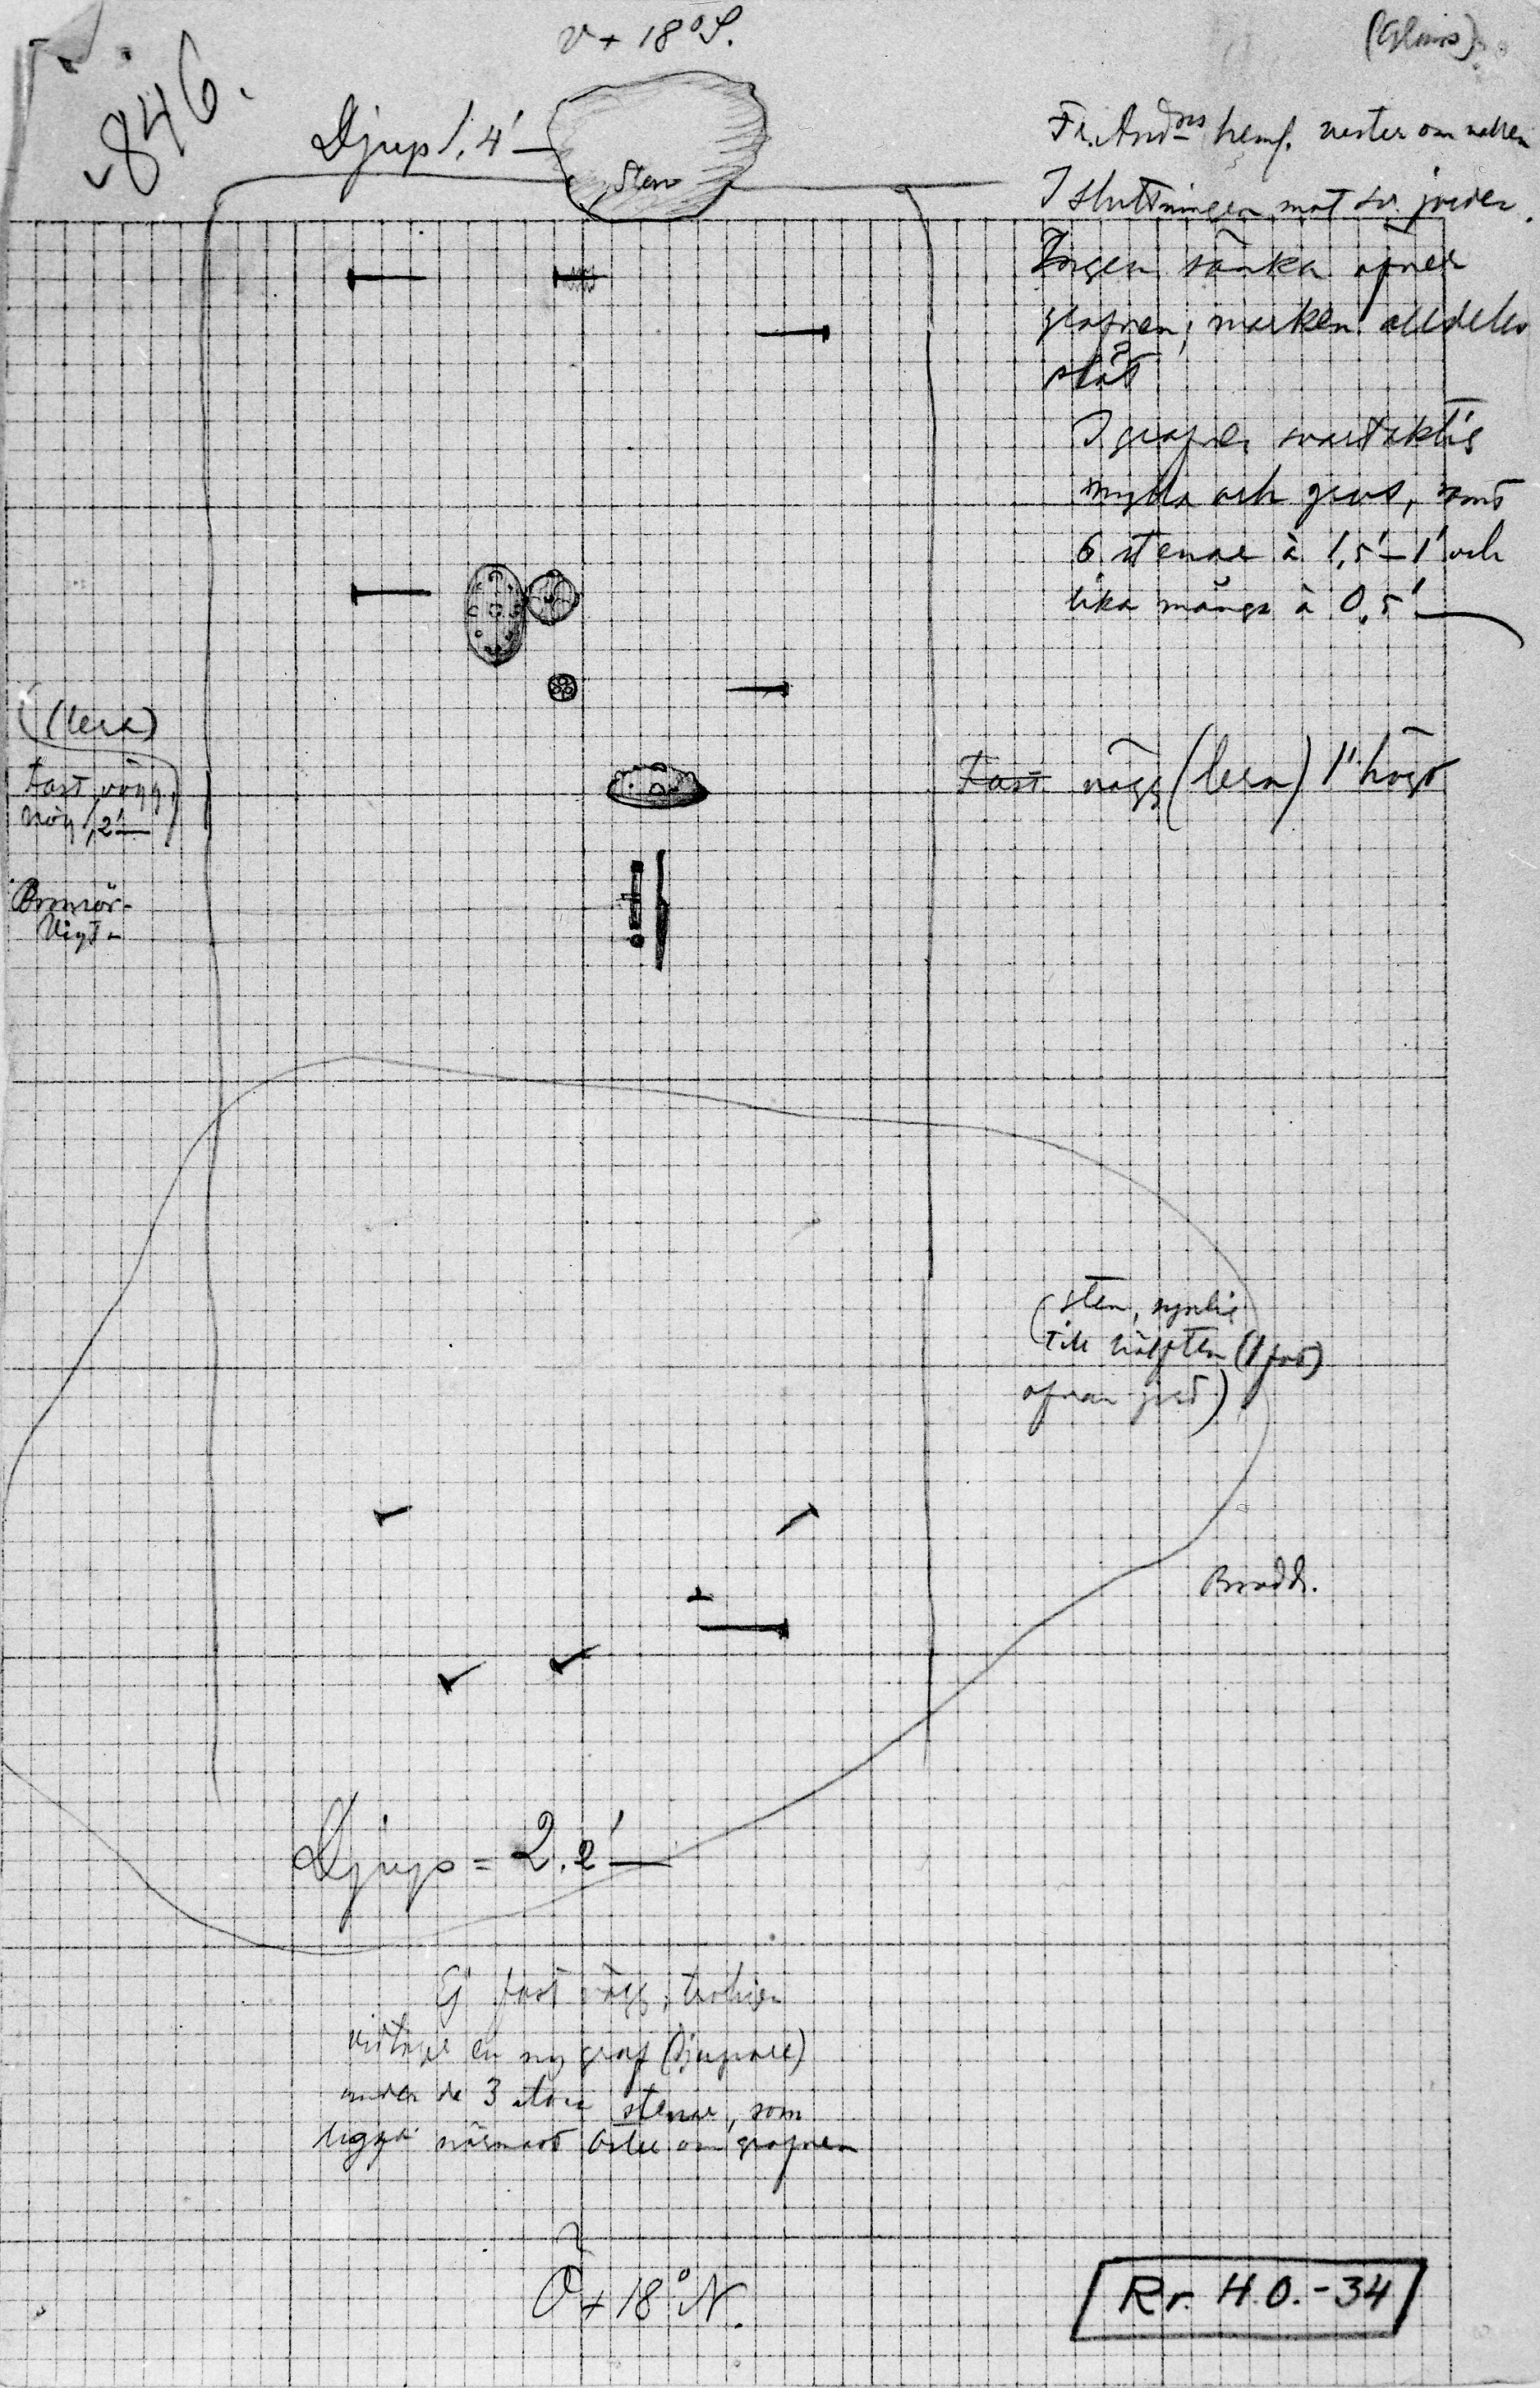 846.
V + 18° S.
Djup 1,4'
Sten
Fr. And:ns heml. vester om vallen
I sluttningen mot sv. jorden.
Ingen sänka ofver
grafven; marken alldeles
slät
I grafven svartaktig
mylla och grus, samt
6 stenar à 1,5'–1' och
lika många à 0,5'
(lera)
Fast vägg,
hög 1,2'
Fast vägg (lera) 1' hög
(sten, synlig
till hälften (1 fot)
ofvan jord)
Bradd.
Djup = 2.2'
Ej fast vägg; troligen
vidtager en ny graf (djupare)
under de 3 stora stenar, som
ligga närmast öster om grafven
Ö + 18° N.
Rr. H.O.-34